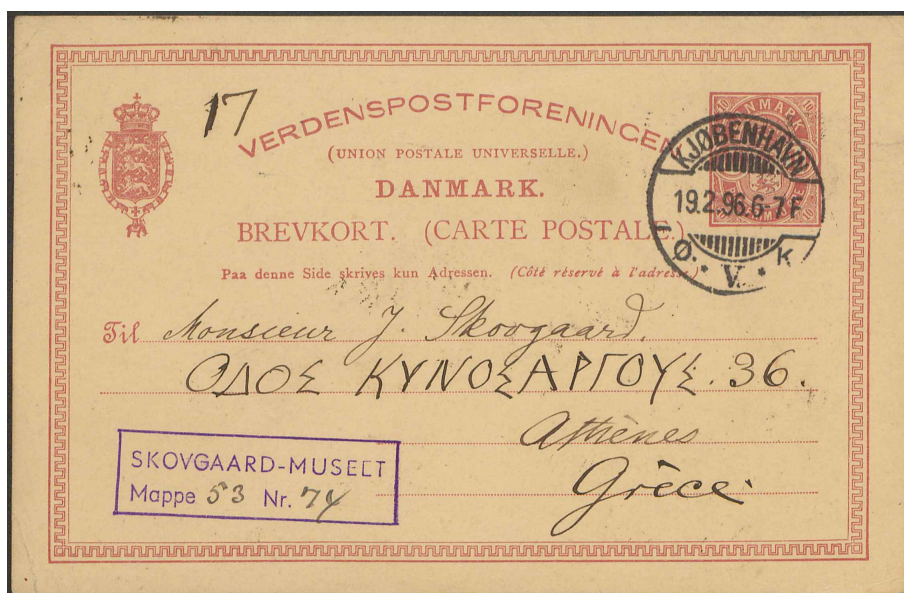 17
VERDENSPOSTFORENINGEN
(UNION POSTALE UNIVERSELLE.)
DANMARK.
BREVKORT. (CARTE POSTALE.)
Paa denne Side skrives kun Adressen. (Côté réservé à l'adresse.)
10 DANMARK 10
KJØBENHAVN
19.2.96.6-7F
Ø. * V. * K
Til Monsieur J. Skovgaard.
ΟΔΟΣ ΚΥΝΟΣΑΡΓΟΥΣ. 36.
Athènes
Grèce.
SKOVGAARD-MUSEET
Mappe 53 Nr. 74
10